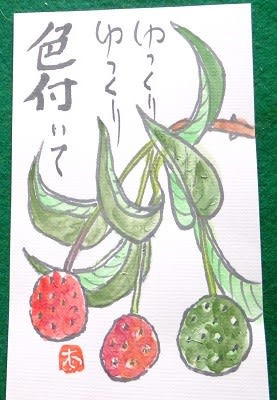 ゆっくり
ゆっくり
色付いて